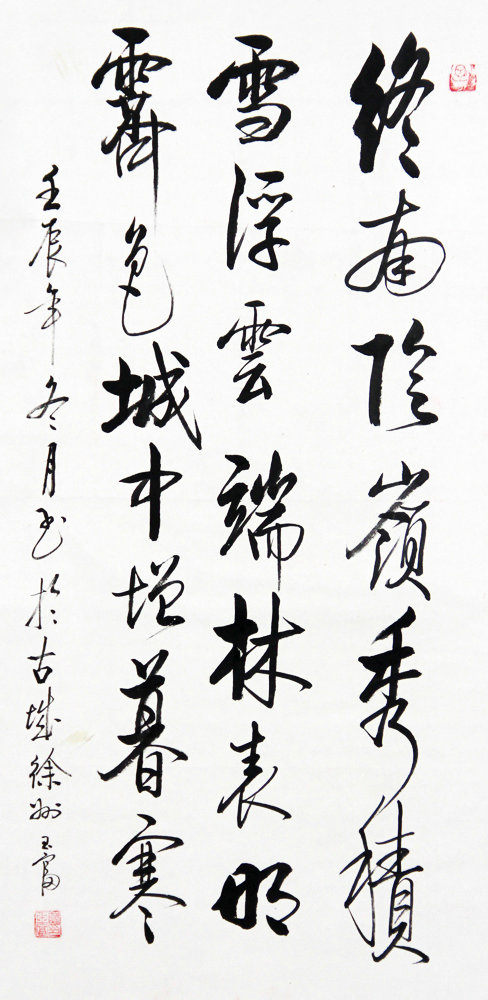 終南陰嶺秀積
雪浮雲端林表明
霽色城中增暮寒
壬辰年冬月书於古城徐州玉富